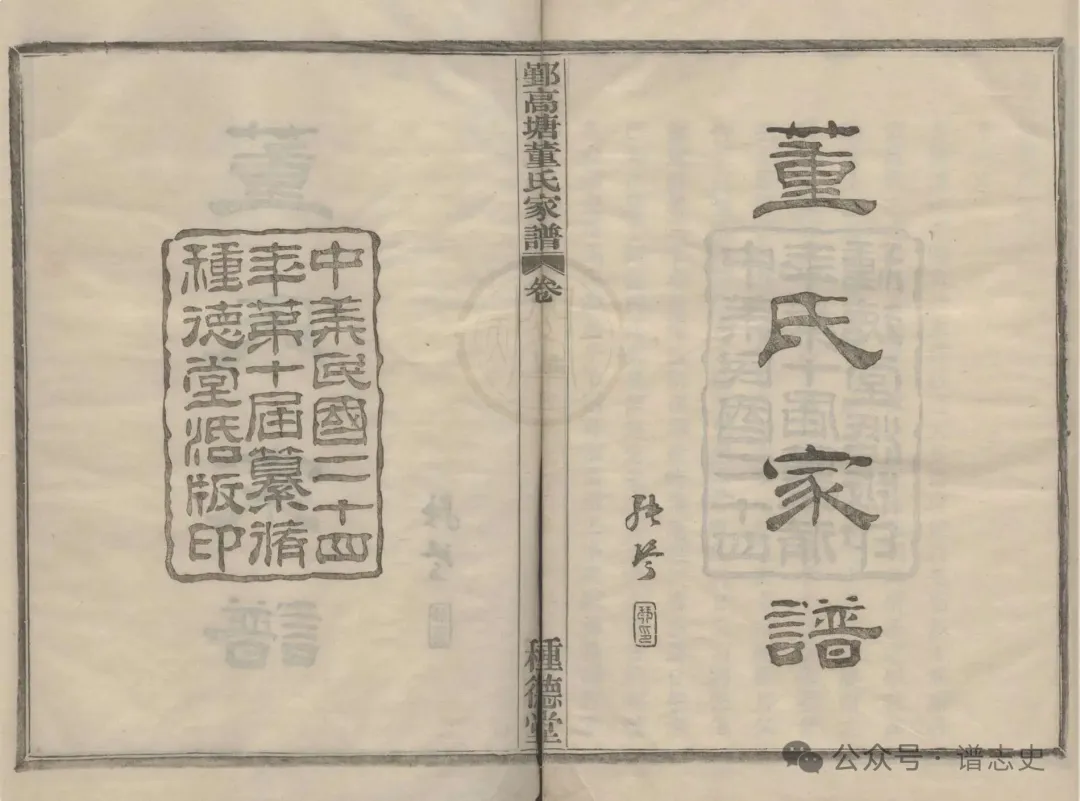 董氏家譜
鄞高塘董氏家譜 卷
種德堂
中華民國二十四
年第十届纂修
種德堂活版印
公众号·谱志史